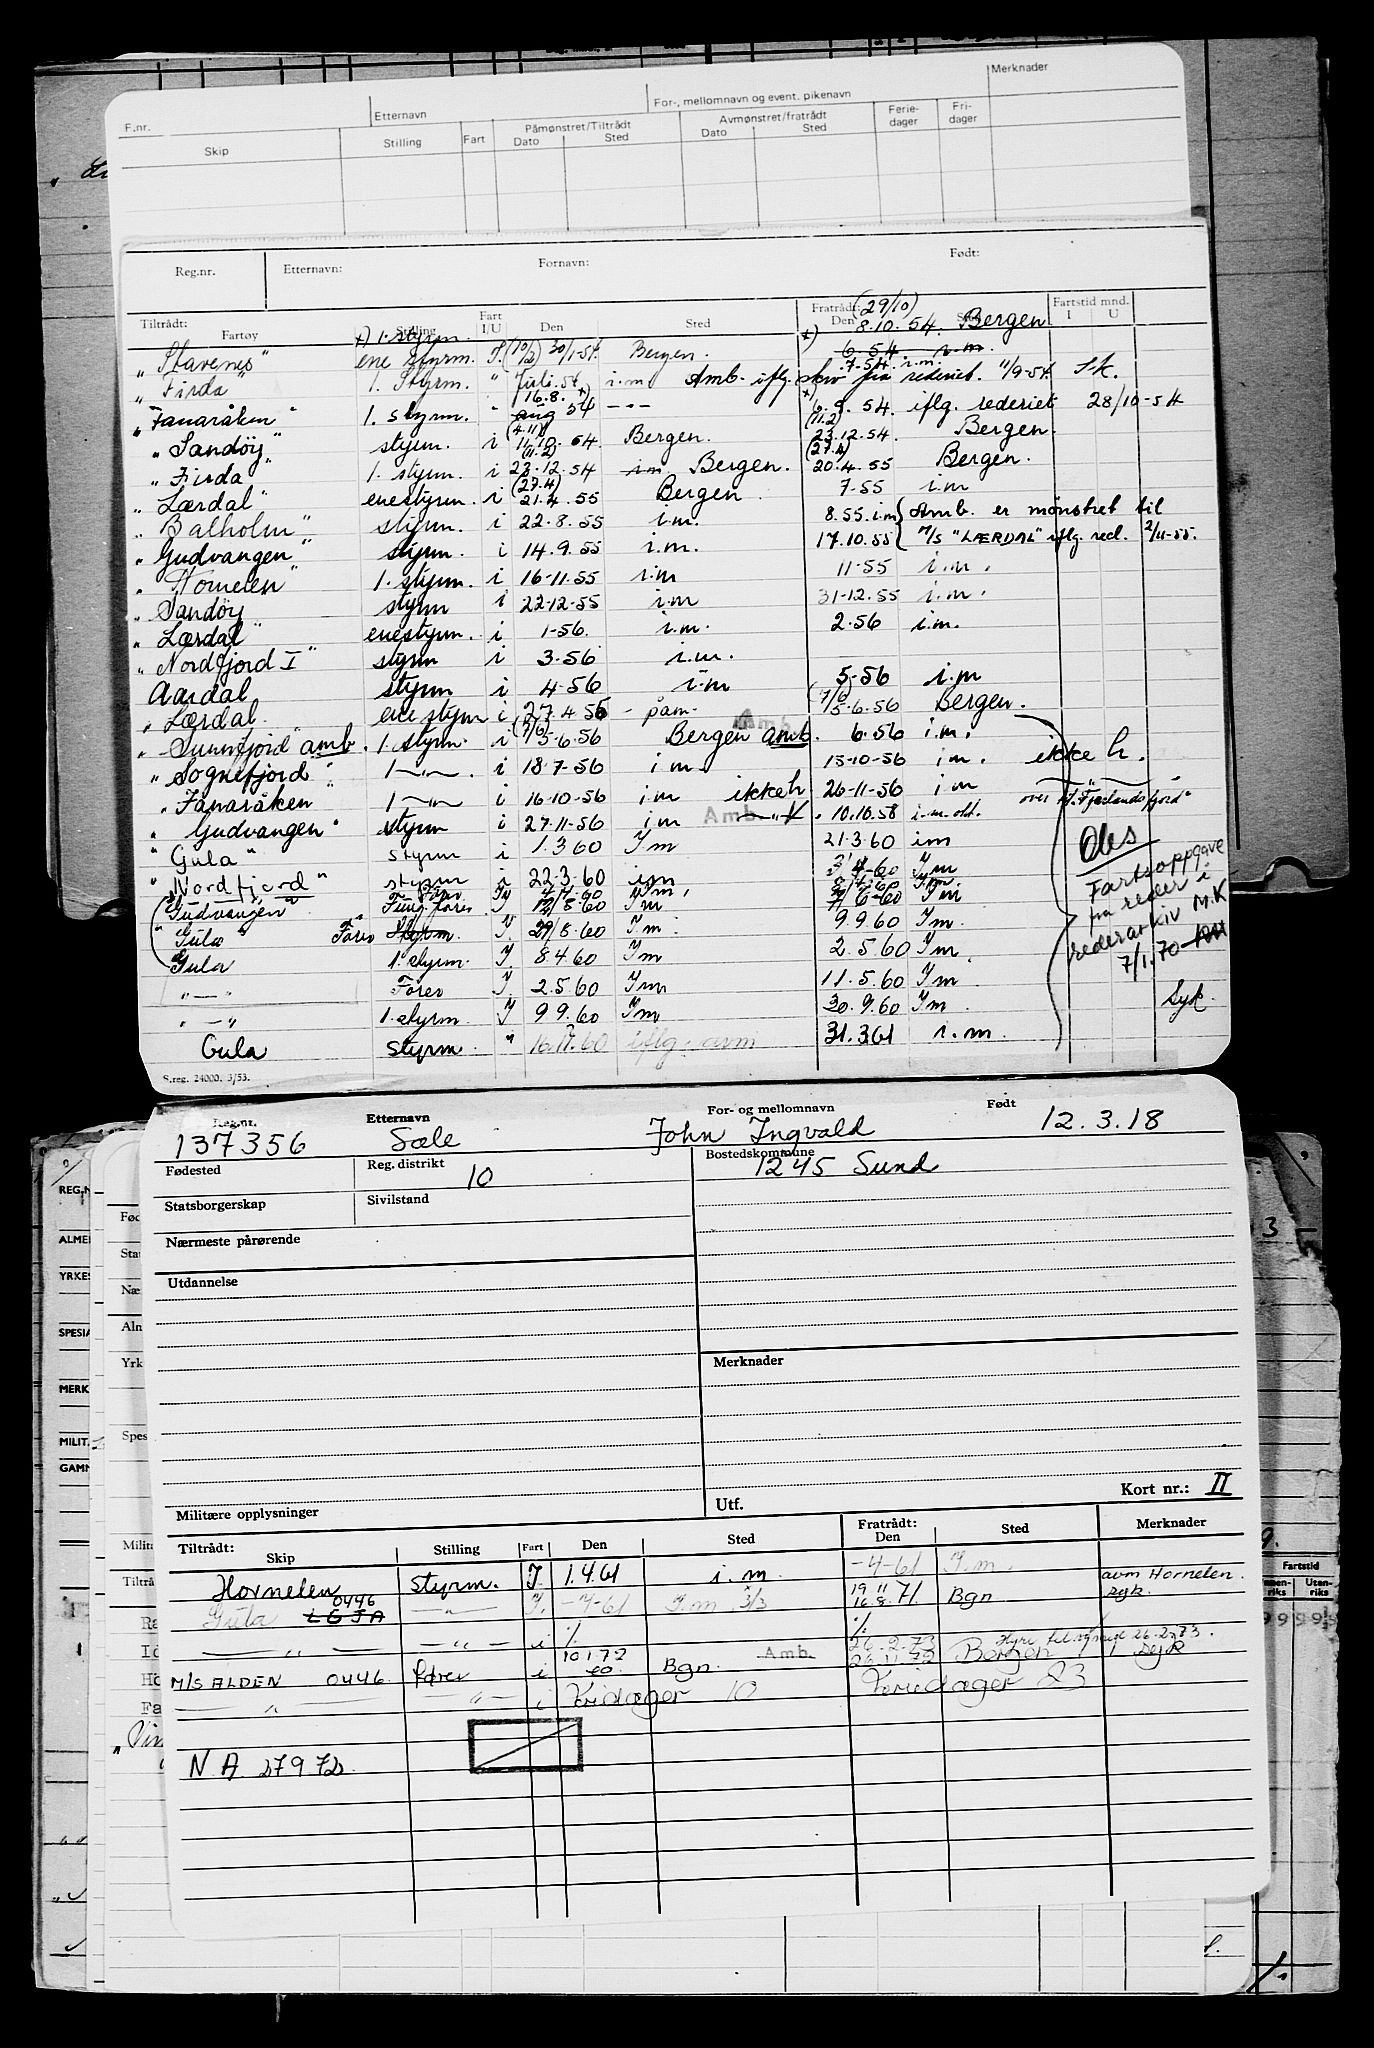 Merknader
F.nr. Etternavn For-, mellomnavn og event. pikenavn
Skip Stilling Fart Påmønstret/Tiltrådt Dato Sted Avmønstret/fratrådt Dato Sted Ferie-dager Fri-dager
Reg.nr. Etternavn: Fornavn: Født:
Tiltrådt: Fartøy Stilling Fart I/U Den Sted Fratrådt: Den Sted Fartstid mnd. I U
x) 1. styrm. (29/10)
" Stavenes" ene styrm. I. 30/1-54. Bergen. x) 8.10.54. Bergen
6.54 i.m.
" Firda" 1. Styrm. " Juli.54 i.m. 7.54. i.m. Amb. iflg. skriv fra rederiet. 11/9-54. SK.
" Fanaråken" 1. styrm. " 16.8. x) aug 54 -"- x) 6.9.54. iflg. rederiet 28/10-54
" Sandöy" styrm. i (4.11) 14.10.54. Bergen. (11.2) 23.12.54. Bergen.
" Firda" 1. styrm. i (11.2) 23.12.54 i.m. Bergen. (27.4) 20.4.55 Bergen.
" Lærdal" enestyrm. i (27.4) 21.4.55 Bergen. 7-55 i.m
" Balholm" styrm. i 22.8.55 i.m. 8.55. i.m { Amb. er mönstret til
" Gudvangen" styrm. i 14.9.55 i.m. 17.10.55 { M/S "LÆRDAL" iflg. red. 2/11-55.
" Hornelen" 1. styrm. i 16-11.55 i.m 11-55 i.m.
" Sandöy styrm i 22-12-55 i.m 31-12.55 i.m.
" Lærdal" enestyrm. i 1-56. i.m. 2.56 i.m.
" Nordfjord I" styrm i 3.56 i.m.
Aardal styrm i 4-56 i.m 5-56 i.m
" Lærdal. ene styrm i 27.4.56 - påm. (7/6) 5-6.56 Bergen.
" Sunnfjord amb. 1. styrm. i (7/6) 5-6.56 Bergen amb. Amb. 6.56 i.m.
" Sognefjord" 1 -"- i 18.7-56 i.m 15-10-56 i.m. ikke h.
" Fanaråken" 1 -"- i 16-10-56 i.m ikke h 26-11-56 i.m
" Gudvangen" styrm i 27-11-56 i.m Amb. 10.10.58 i.m. over "Fjærlandsfjord"
" Gula" styrm i 1.3.60 I m 21.3.60 im
" Nordfjord" styrm i 22.3.60 im 3.4.60 I m
" Gudvangen" Fung. förer I 12/8.60 I m 7/6-60 I m
" Gula" Förer Styrm. I 29/8.60 I.m. 9.9.60 I m.
Gula 1. styrm. I. 8.4.60 I m 2.5.60 I m.
" — " Förer I 2.5.60 I m 11.5.60 I m
" — " 1. styrm I 9 9.60 I m 30.9.60 I m Syk.
Gula Styrm " 16.11.60 iflg. avm 31.3.61 i.m.
Obs
Fartsoppgave
fra reder i
rederarkiv M.K
7/1.70
S.reg. 24000. 3/53.
Reg.nr. 137356 Etternavn Sæle For- og mellomnavn John Ingvald Født 12.3.18
Fødested Reg. distrikt 10 Bostedskommune 1245 Sund
Statsborgerskap Sivilstand
Nærmeste pårørende
Utdannelse
Merknader
Militære opplysninger Utf. Kort nr.: II
Tiltrådt: Skip Stilling Fart Den Sted Fratrådt: Den Sted Merknader
Hornelen styrm. I. 1.4.61 i.m. -4-61 I.m. avm Hornelen.
Gula 0446 LGJA -"- I. -4-61 I.m. 3/3 19.11 16.8.71 Bgn syk.
— " — -"- i % % Hyre til og med 26.2.73.
M/S ALDEN 0446 förer i 10.1.72 Bgn. Amb. 26.2.73 26.11.72 Bergen Syk
— " — -"- i Feridager 10 Feriedager 23
N A 27972
REG.N
ALME
YRKES
SPESIA
MERK
MILIT.
GAMM
Fartstid
Innen-riks Uten-riks